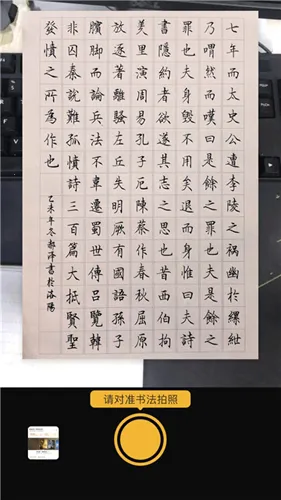 七年而太史公遭李陵之禍幽於縲紲
乃喟然而嘆曰是餘之罪也夫是餘之
罪也夫身毀不用矣退而深惟曰夫詩
書隱約者欲遂其志之思也昔西伯拘
羑里演周易孔子厄陳蔡作春秋屈原
放逐著離騷左丘失明厥有國語孫子
臏腳而論兵法不韋遷蜀世傳呂覽韓
非囚秦說難孤憤詩三百篇大抵賢聖
發憤之所為作也
乙未年冬郝澤書於洛陽
请对准书法拍照